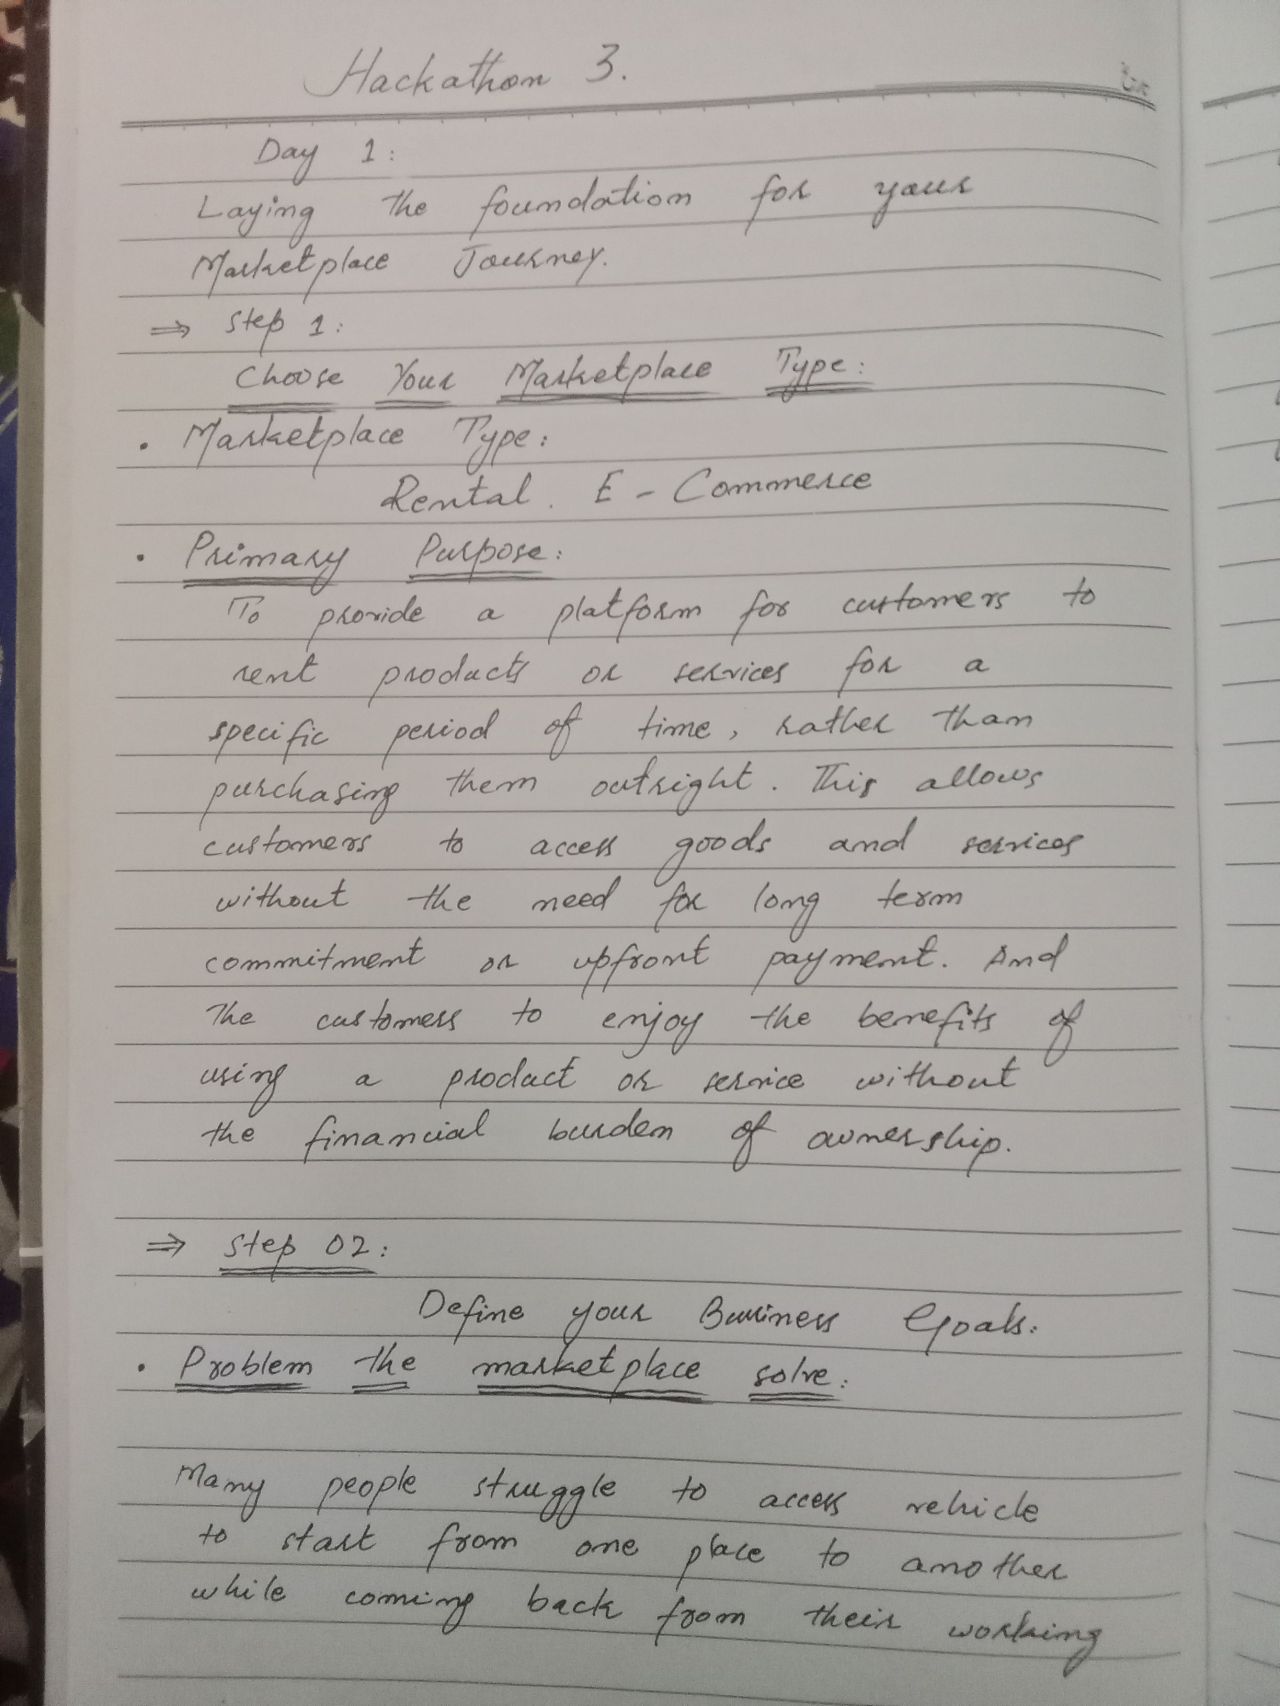 Hackathon 3.
Day 1:
Laying the foundation for your
Marketplace Journey.
⇒ Step 1:
Choose Your Marketplace Type:
• Marketplace Type:
Rental. E-Commerce
• Primary Purpose:
To provide a platform for customers to
rent products or services for a
specific period of time, rather than
purchasing them outright. This allows
customers to access goods and services
without the need for long term
commitment or upfront payment. And
The customers to enjoy the benefits of
using a product or service without
the financial burden of ownership.
⇒ Step 02:
Define your Business Goals:
• Problem the marketplace solve:
Many people struggle to access vehicle
to start from one place to another
while coming back from their working